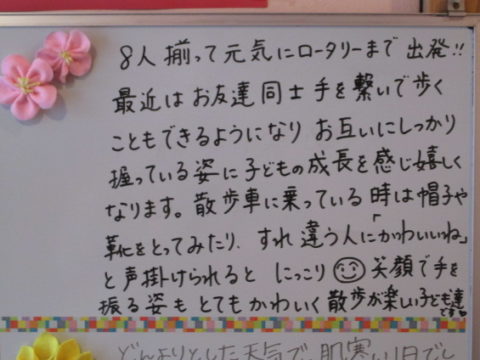 8人揃って元気にロータリーまで出発!!
最近はお友達同士手を繋いで歩く
こともできるようになり お互いにしっかり
握っている姿に子どもの成長を感じ嬉しく
なります。散歩車に乗っている時は帽子や
靴をとってみたり、すれ違う人に「かわいいね」
と声掛けられると にっこり☺笑顔で手を
振る姿も とてもかわいく 散歩が楽しい子ども達
です。
どんよりとした天気で、肌寒い1日でし